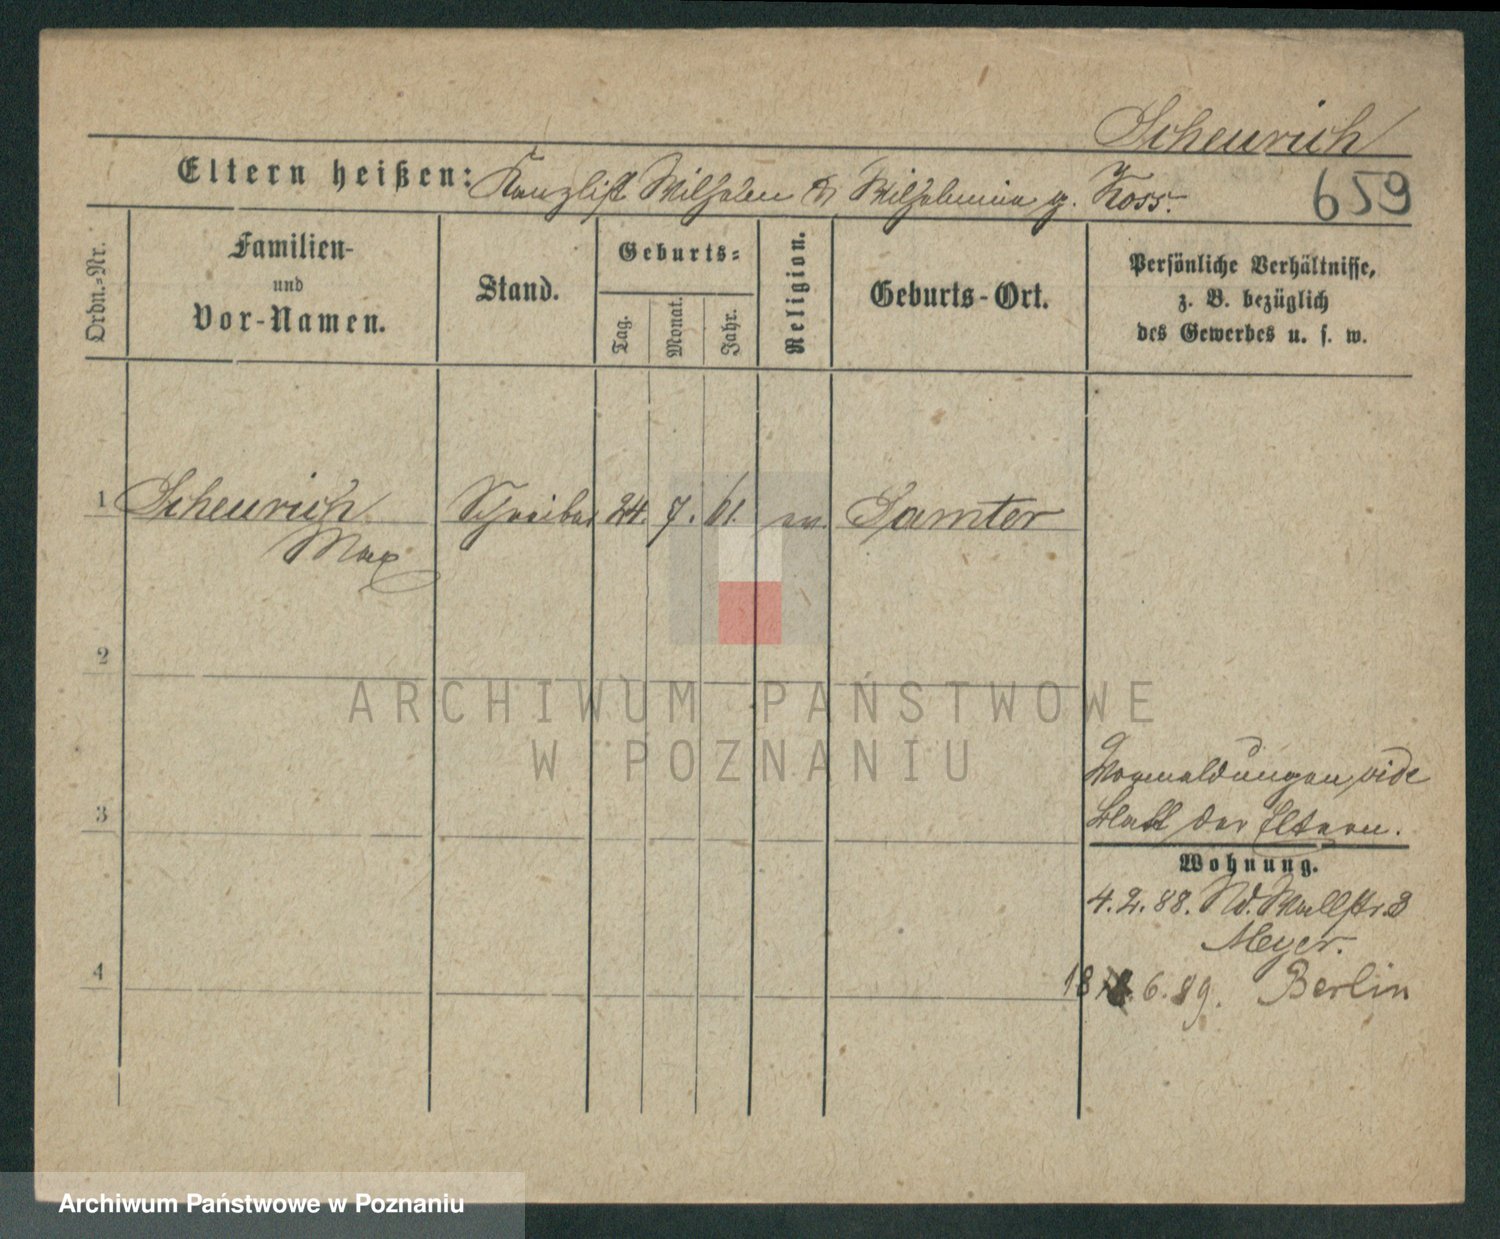 Scheurich
Eltern heißen: Kanzlist Wilhelm & Wilhelmine g. Koss.
659
Ordn.-Nr.
Familien-
und
Vor-Namen.
Stand.
Geburts-
Tag.
Monat.
Jahr.
Religion.
Geburts-Ort.
Persönliche Verhältnisse,
z. B. bezüglich
des Gewerbes u. s. w.
1 Scheurich Schreiber 24. 7. 61. ev. Samter
Max
2
ARCHIWUM PAŃSTWOWE
W POZNANIU
Vormeldungen vide
3 Blatt der Eltern.
Wohnung.
4.2.88. Nd. Wallstr. 3
Meyer.
4
6.89. Berlin
Archiwum Państwowe w Poznaniu